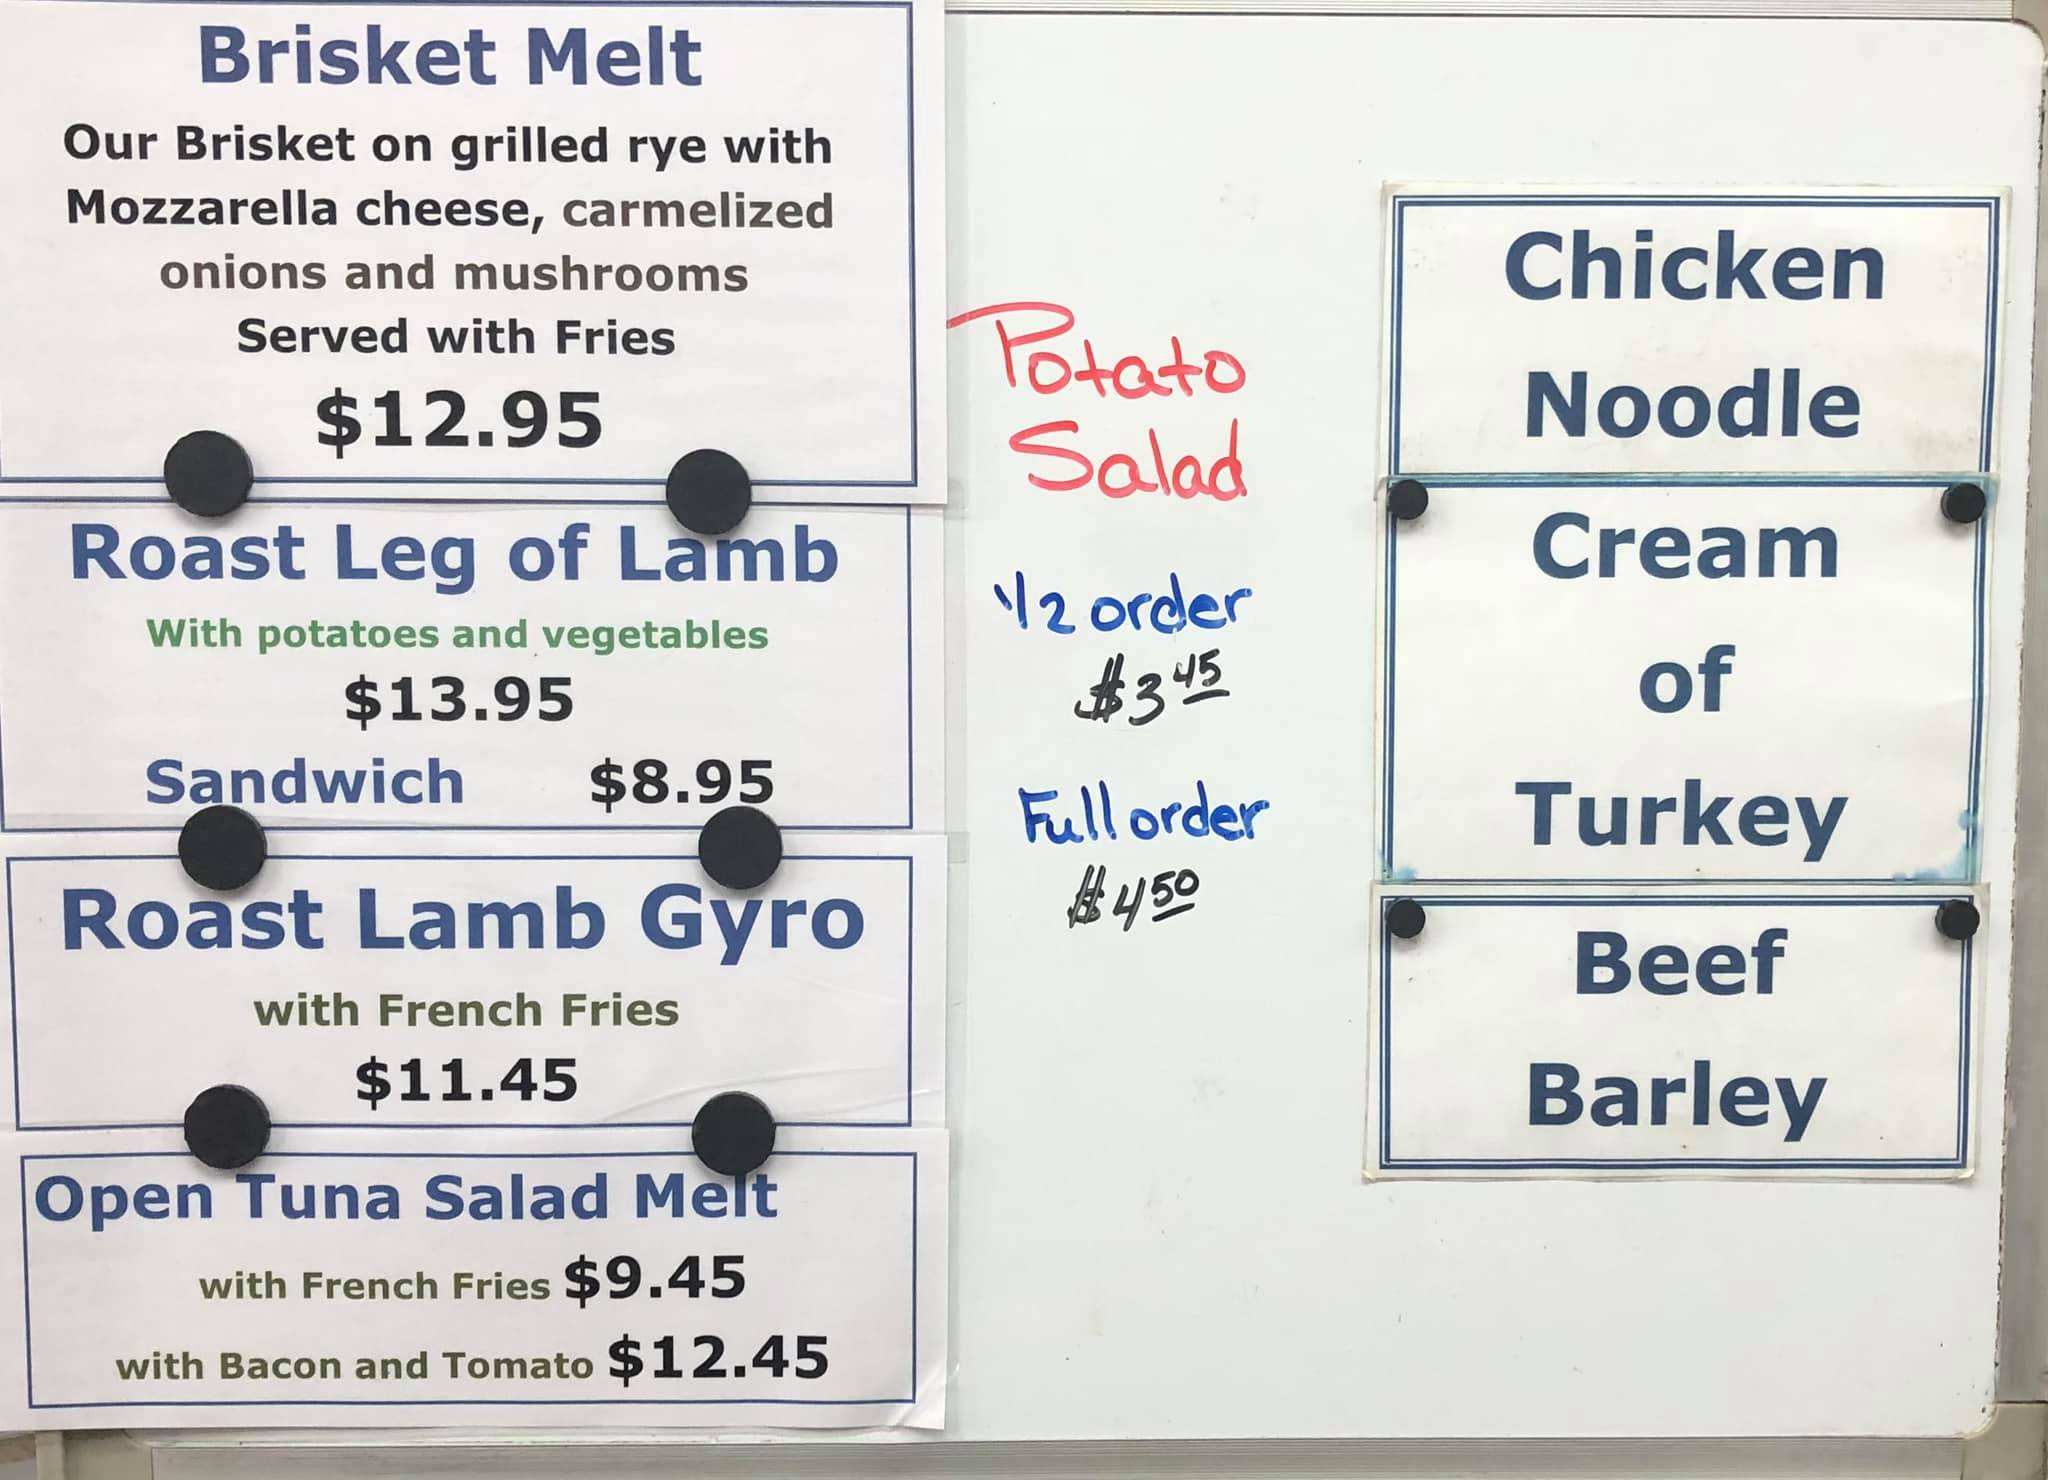 Brisket Melt
Our Brisket on grilled rye with
Mozzarella cheese, carmelized
onions and mushrooms
Served with Fries
$12.95
Roast Leg of Lamb
With potatoes and vegetables
$13.95
Sandwich $8.95
Roast Lamb Gyro
with French Fries
$11.45
Open Tuna Salad Melt
with French Fries $9.45
with Bacon and Tomato $12.45
Potato
Salad
1/2 order
$3 45
Full order
$4 50
Chicken
Noodle
Cream
of
Turkey
Beef
Barley